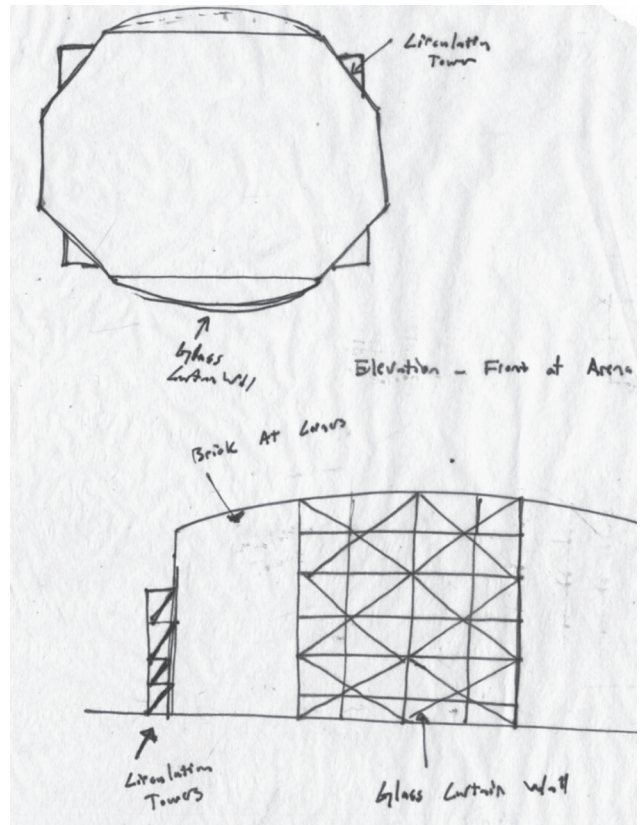 Circulation
Tower
Glass
Curtain Wall
Elevation - Front at Arena
Brick At Corners
Circulation
Towers
Glass Curtain Wall